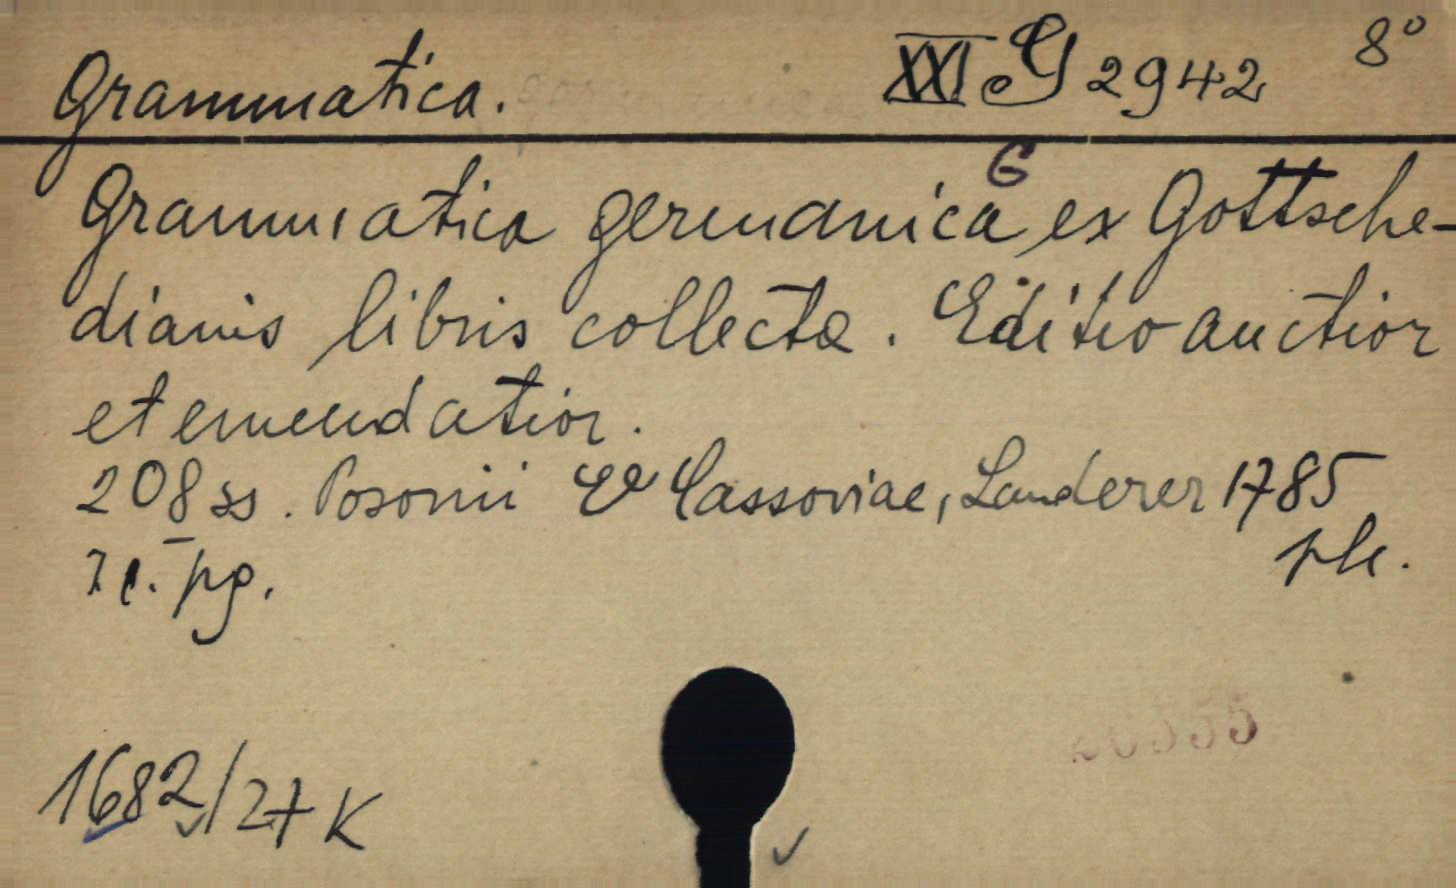 Grammatica. XXI G 2942 8°
G
Grammatica germanica ex Gottsche-
dianis libris collecta. Editio auctior
et emendatior.
208 ss. Posonii & Cassoviae, Landerer 1785
pg. plk.
1682/27 K